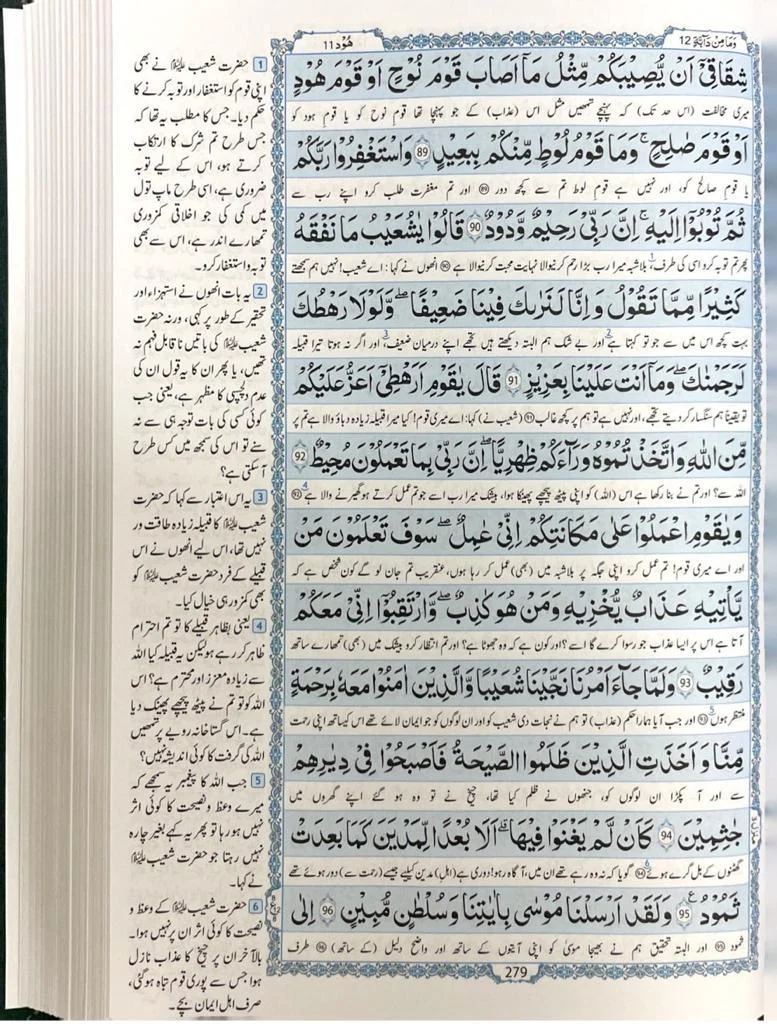 وَمَا مِنْ دَآبَّةٍ 12
هُوْد 11
شِقَاقِیْۤ اَنْ یُّصِیْبَكُمْ مِّثْلُ مَاۤ اَصَابَ قَوْمَ نُوْحٍ اَوْ قَوْمَ هُوْدٍ
میری مخالفت (اس حد تک) کہ پہنچے تمھیں مثل اس (عذاب) کے جو پہنچا تھا قوم نوح کو یا قوم ہود کو
اَوْ قَوْمَ صٰلِحٍ ؕ وَمَا قَوْمُ لُوْطٍ مِّنْكُمْ بِبَعِیْدٍ 89 وَاسْتَغْفِرُوْا رَبَّكُمْ
یا قوم صالح کو، اور نہیں ہے قوم لوط تم سے کچھ دور 89 اور تم مغفرت طلب کرو اپنے رب سے
ثُمَّ تُوْبُوْۤا اِلَیْهِ ؕ اِنَّ رَبِّیْ رَحِیْمٌ وَّدُوْدٌ 90 قَالُوْا یٰشُعَیْبُ مَا نَفْقَهُ
پھر تم توبہ کرو اسی کی طرف،1 بلاشبہ میرا رب بڑا رحم کرنیوالا نہایت محبت کرنیوالا ہے 90 انھوں نے کہا: اے شعیب! نہیں ہم سمجھتے
كَثِیْرًا مِّمَّا تَقُوْلُ وَاِنَّا لَنَرٰىكَ فِیْنَا ضَعِیْفًا ۚ وَلَوْلَا رَهْطُكَ
بہت کچھ اس میں سے جو تو کہتا ہے2 اور بے شک ہم البتہ دیکھتے ہیں تجھے اپنے درمیان ضعیف،3 اور اگر نہ ہوتا تیرا قبیلہ
لَرَجَمْنٰكَ ۫ وَمَاۤ اَنْتَ عَلَیْنَا بِعَزِیْزٍ 91 قَالَ یٰقَوْمِ اَرَهْطِیْۤ اَعَزُّ عَلَیْكُمْ
تو یقیناً ہم سنگسار کر دیتے تجھے، اور نہیں ہے تو ہم پر کچھ غالب 91 (شعیب نے) کہا: اے میری قوم! کیا میرا قبیلہ زیادہ دباؤ والا ہے تم پر
مِّنَ اللّٰهِ وَاتَّخَذْتُمُوْهُ وَرَآءَكُمْ ظِهْرِیًّا ؕ اِنَّ رَبِّیْ بِمَا تَعْمَلُوْنَ مُحِیْطٌ 92
اللہ سے؟ اور تم نے بنا رکھا ہے اس (اللہ) کو اپنی پیٹھ پیچھے پھینکا ہوا، بیشک میرا رب اسے جو تم عمل کرتے ہو گھیرنے والا ہے4 92
وَیٰقَوْمِ اعْمَلُوْا عَلٰی مَكَانَتِكُمْ اِنِّیْ عَامِلٌ ؕ سَوْفَ تَعْلَمُوْنَ مَنْ
اور اے میری قوم! تم عمل کرو اپنی جگہ پر بلاشبہ میں (بھی) عمل کر رہا ہوں، عنقریب تم جان لو گے کون شخص ہے کہ
یَّاْتِیْهِ عَذَابٌ یُّخْزِیْهِ وَمَنْ هُوَ كَاذِبٌ ؕ وَارْتَقِبُوْۤا اِنِّیْ مَعَكُمْ
آتا ہے اس پر ایسا عذاب جو رسوا کرے گا اسے؟ اور کون ہے کہ وہ جھوٹا ہے؟ اور تم انتظار کرو بیشک میں (بھی) تمھارے ساتھ
رَقِیْبٌ 93 وَلَمَّا جَآءَ اَمْرُنَا نَجَّیْنَا شُعَیْبًا وَّالَّذِیْنَ اٰمَنُوْا مَعَهٗ بِرَحْمَةٍ
منتظر ہوں5 93 اور جب آیا ہمارا حکم (عذاب) تو ہم نے نجات دی شعیب کو اور ان لوگوں کو جو ایمان لائے تھے اس کیساتھ اپنی رحمت
مِّنَّا وَاَخَذَتِ الَّذِیْنَ ظَلَمُوا الصَّیْحَةُ فَاَصْبَحُوْا فِیْ دِیَارِهِمْ
سے اور آ پکڑا ان لوگوں کو، جنھوں نے ظلم کیا تھا، چیخ نے تو وہ ہو گئے اپنے گھروں میں
جٰثِمِیْنَ 94 كَاَنْ لَّمْ یَغْنَوْا فِیْهَا ؕ اَلَا بُعْدًا لِّمَدْیَنَ كَمَا بَعِدَتْ
گھٹنوں کے بل گرے ہوئے6 94 گویا کہ نہ وہ رہے تھے ان میں، آگاہ رہو! دوری ہے (اہل) مدین کیلیے جیسے (رحمت سے) دور ہوئے تھے
ثَمُوْدُ 95 وَلَقَدْ اَرْسَلْنَا مُوْسٰی بِاٰیٰتِنَا وَسُلْطٰنٍ مُّبِیْنٍ 96 اِلٰی
ثمود 95 اور البتہ تحقیق ہم نے بھیجا موسیٰ کو اپنی آیتوں کے ساتھ اور واضح دلیل (کے ساتھ) 96 طرف
279
1 حضرت شعیب علیہ السلام نے بھی
اپنی قوم کو استغفار اور توبہ کرنے کا
حکم دیا۔ جس کا مطلب یہ تھا کہ
جس طرح تم شرک کا ارتکاب
کرتے ہو، اس کے لیے توبہ
ضروری ہے، اسی طرح ماپ تول
میں کمی کی جو اخلاقی کمزوری
تمھارے اندر ہے، اس سے بھی
توبہ و استغفار کرو۔
2 یہ بات انھوں نے استہزاء اور
تحقیر کے طور پر کہی، ورنہ حضرت
شعیب علیہ السلام کی باتیں ناقابل فہم نہ
تھیں، یا پھر ان کا یہ قول ان کی
عدم دلچسپی کا مظہر ہے، یعنی جب
کوئی کسی کی بات توجہ ہی سے نہ
سنے تو اس کی سمجھ میں کس طرح
آسکتی ہے؟
3 یہ اس اعتبار سے کہا کہ حضرت
شعیب علیہ السلام کا قبیلہ زیادہ طاقت ور
نہیں تھا، اس لیے انھوں نے اس
قبیلے کے فرد حضرت شعیب علیہ السلام کو
بھی کمزور ہی خیال کیا۔
4 یعنی بظاہر قبیلے کا تو تم احترام
ظاہر کر رہے ہو لیکن یہ قبیلہ کیا اللہ
سے زیادہ معزز اور محترم ہے؟ اس
اللہ کو تو تم نے پیٹھ پیچھے پھینک دیا
ہے۔ اس گستاخانہ رویے پر تمھیں
اللہ کی گرفت کا کوئی اندیشہ نہیں؟
5 جب اللہ کا پیغمبر یہ سمجھے کہ
میرے وعظ و نصیحت کا کوئی اثر
نہیں ہو رہا تو پھر یہ کہے بغیر چارہ
نہیں رہتا جو حضرت شعیب علیہ السلام
نے کہا۔
6 حضرت شعیب علیہ السلام کے وعظ و
نصیحت کا کوئی اثر ان پر نہیں ہوا۔
بالآخر ان پر چیخ کا عذاب نازل
ہوا جس سے پوری قوم تباہ ہوگئی،
صرف اہل ایمان بچے۔